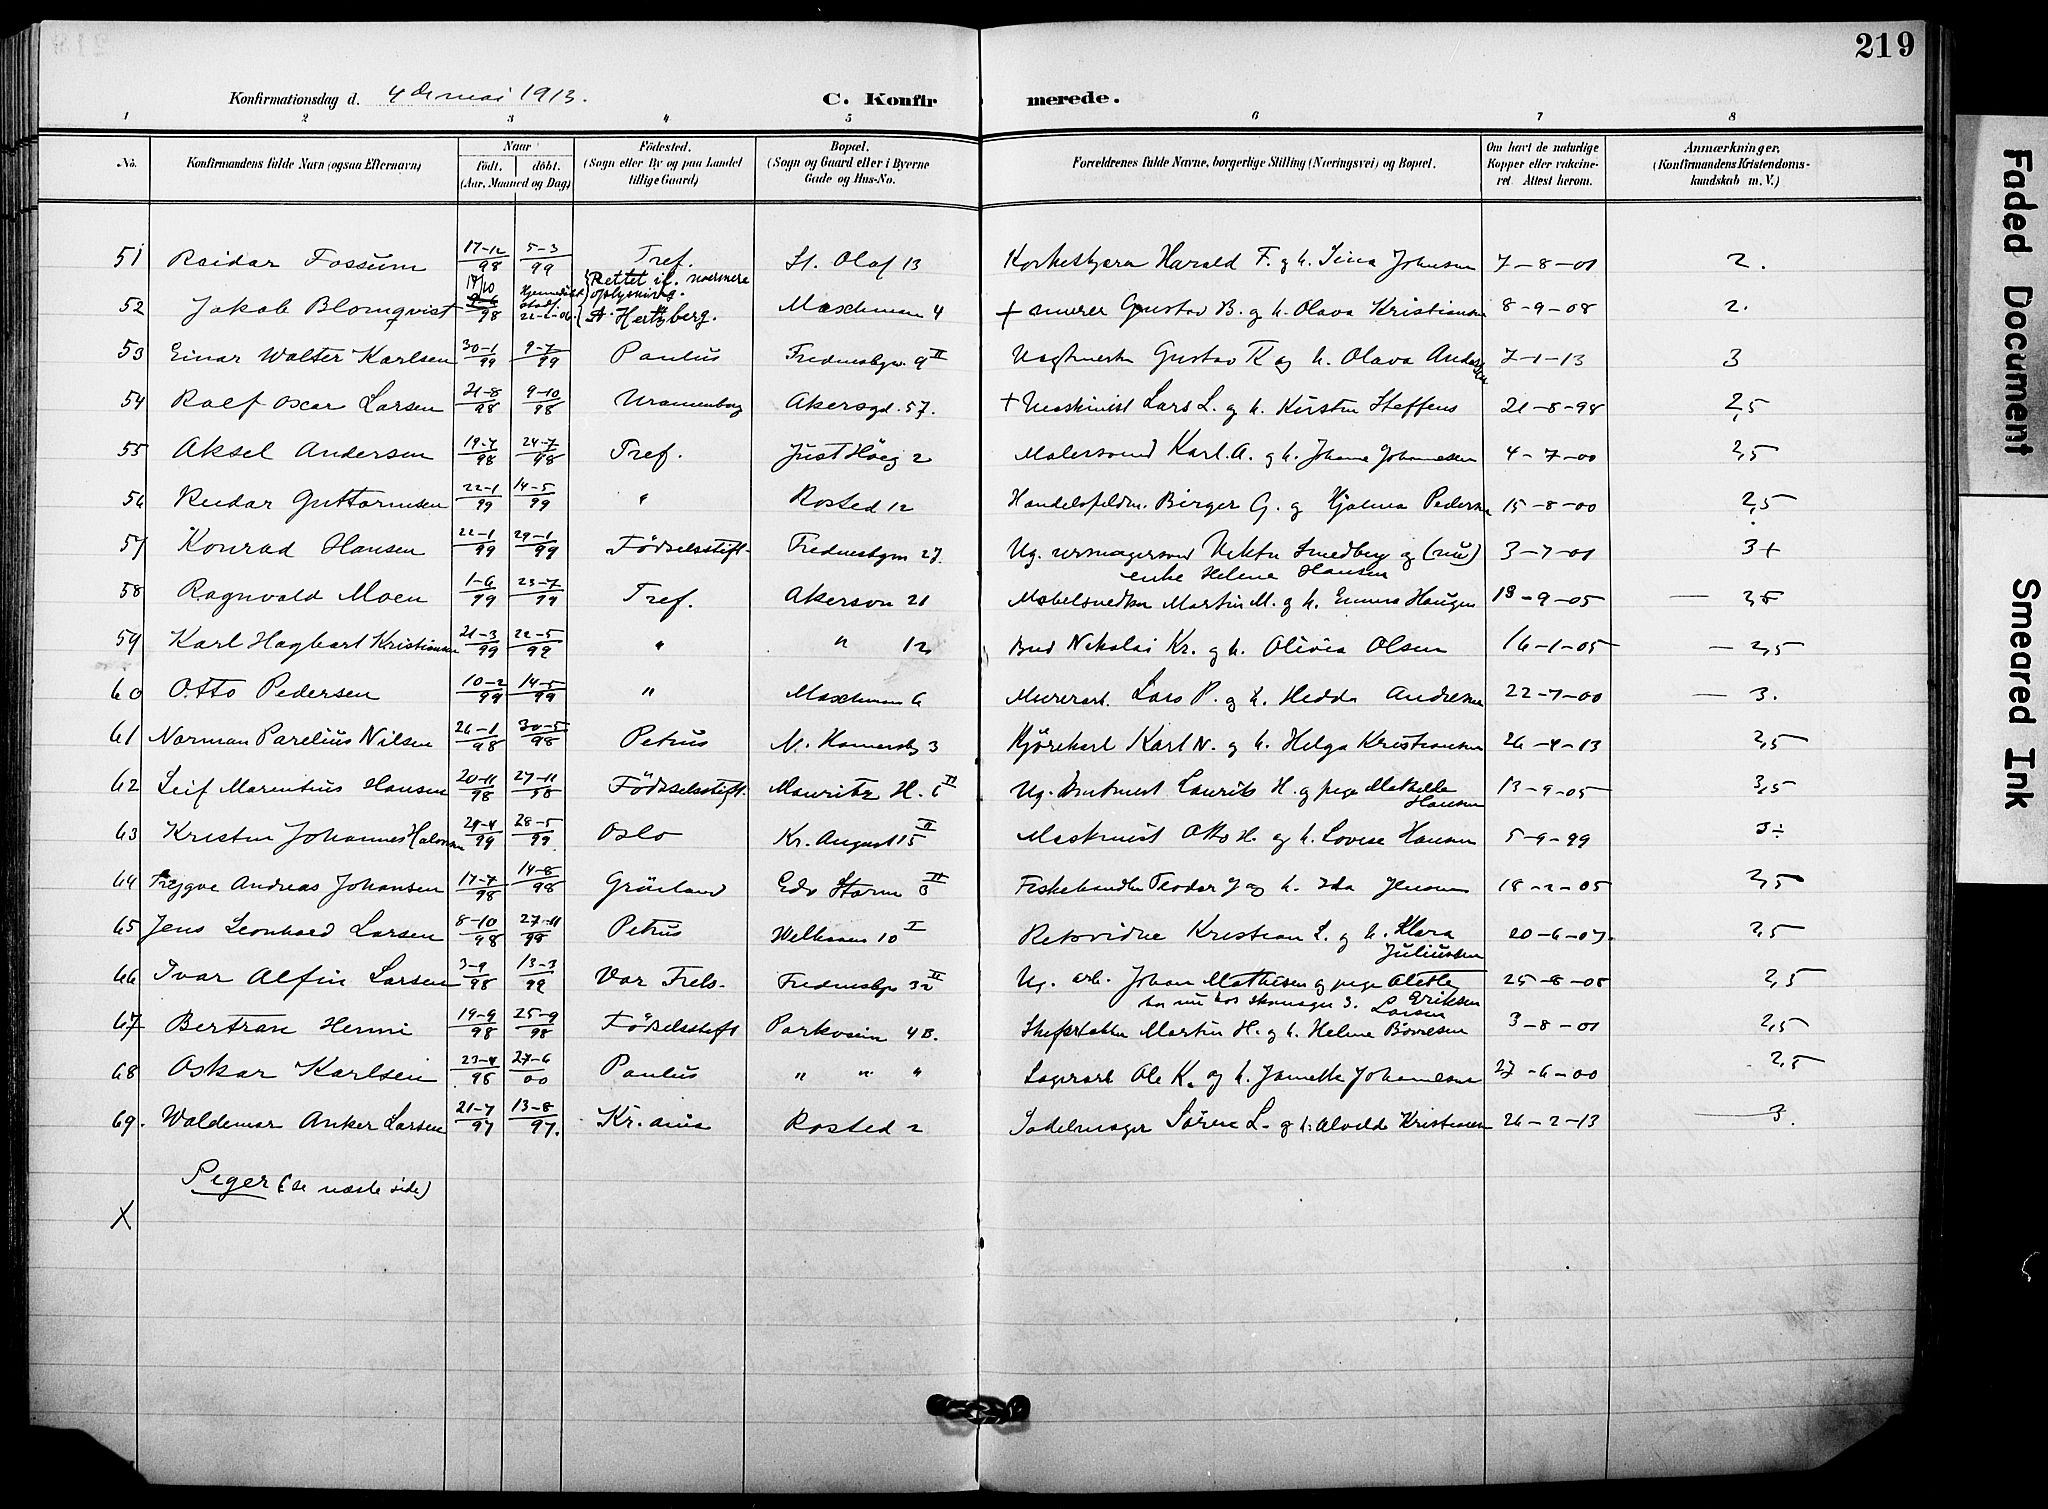 219
Konfirmationsdag d. 4de mai 1913. C. Konfir merede.
1 2 3 4 5 6 7 8
No. Konfirmandens fulde Navn (ogsaa Efternavn) Naar født. døbt. (Aar, Maaned og Dag) Fødested. (Sogn eller By og paa Landet tillige Gaard) Bopæl. (Sogn og Gaard eller i Byerne Gade og Hus-No. Forældrenes fulde Navne, borgerlige Stilling (Næringsvei) og Bopæl. Om havt de naturlige Kopper eller vakcineret. Attest herom. Anmærkninger, (Konfirmandens Kristendomskundskab m. V.)
51 Reidar Fossum 17-12/98 5-3/99 Tref. St. Olaf 13 Harald F. g h. Sina Johnsen 7-8-01 2.
52 Jakob Blomqvist 98 {Rettet if. nærmere oplysning. Hertzberg. 4 + murer Gustav B. g h. Olava Kristiansen 8-9-08 2.
53 Einar Walter Karlsen 30-1/99 9-7/99 Paulus 9 II Gustav K og h. Olava Andersen 7-1-13 3
54 Rolf Oscar Larsen 21-8/98 9-10/98 Uranienborg Akersgd. 57. + Maskinist Lars L. g h. Kirstin Steffens 21-8-98 2,5
55 Aksel Andersen 19-7/98 24-7/98 Tref. Just Høeg 2 Malersvend Karl A. g h. Johanne Johannesen 4-7-00 2,5
56 Reidar Guttormsen 22-1/99 14-5/99 " Rosted 12 Birger G. g Hjalma Pedersen 15-8-00 2,5
57 Konrad Hansen 22-1/99 29-1/99 Födselsstift. 27. Ug. Smedberg og (nu) enke Helene Hansen 3-7-01 3+
58 Ragnvald Moen 1-6/99 23-7/99 Tref. 21 Møbelsnedker Martin M. g h. Emma Haugen 18-9-05 — 2,5
59 Karl Hagbart Kristiansen 21-3/99 22-5/99 " " 12 Bud Nikolai Kr. g h. Olivia Olsen 16-1-05 — 2,5
60 Otto Pedersen 10-2/99 14-5/99 " 6 Murerarb. Lars P. g h. Hedda Andresen 22-7-00 — 3.
61 Norman Parelius Nilsen 26-1/98 30-5/98 Petrus 3 Kjørekarl Karl N. g h. Helga Kristiansen 26-4-13 2,5
62 Leif Marentius Hansen 20-11/98 27-11/98 Födselsstift. Mauritz H. 6 II Ug. Laurits H. g pige Mathilde Hansen 13-9-05 3,5
63 Kristen Johannes 29-4/99 28-5/99 Oslo Kr. August 15 II Maskinist Otto H. og h. Lovise Hansen 5-9-99 3÷
64 Trygve Andreas Johansen 17-7/98 14-8/98 Grönland Edv Storm 8 II Fiskehandler Teodor J og h. Ida Jensen 18-2-05 2,5
65 Jens Leonhard Larsen 8-10/98 27-11/98 Petrus 10 I Kristian L. g h. Klara Juliussen 20-6-07. 2,5
66 Ivar Alfin Larsen 3-9/98 13-3/99 Vor Frels. 32 II Ug. arb. Johan Mathisen g pige Eriksen Larsen 25-8-08 2,5
67 Bertran Henni 19-9/98 25-9/98 Födselsstift Parkveien 4 B. Martin H. g h. Helene Børresen 3-8-01 2,5
68 Oskar Karlsen 23-4/98 27-6/00 Paulus " " " Lagerarb Ole K. og h. Jamette Johannesen 27-6-00 2,5
69. Waldemar Anker Larsen 21-7/97 13-8/97. Kr.ania Rosted 2 Sadelmager Sören L. g h. Alvilde Kristiansen 26-2-13 — 3.
Piger (se næste side)
X
Faded Document
Smeared Ink